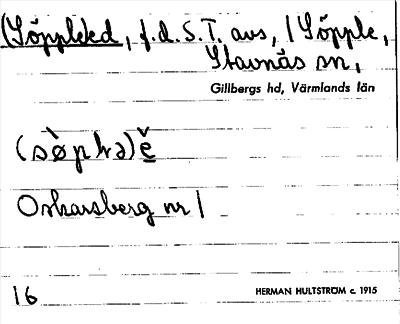 (Söppleled, f.d. S.T. avs, i Söpple,
Stavnäs sn,
Gillbergs hd, Värmlands län
Oskarsberg nr 1
16
HERMAN HULTSTRÖM c. 1915